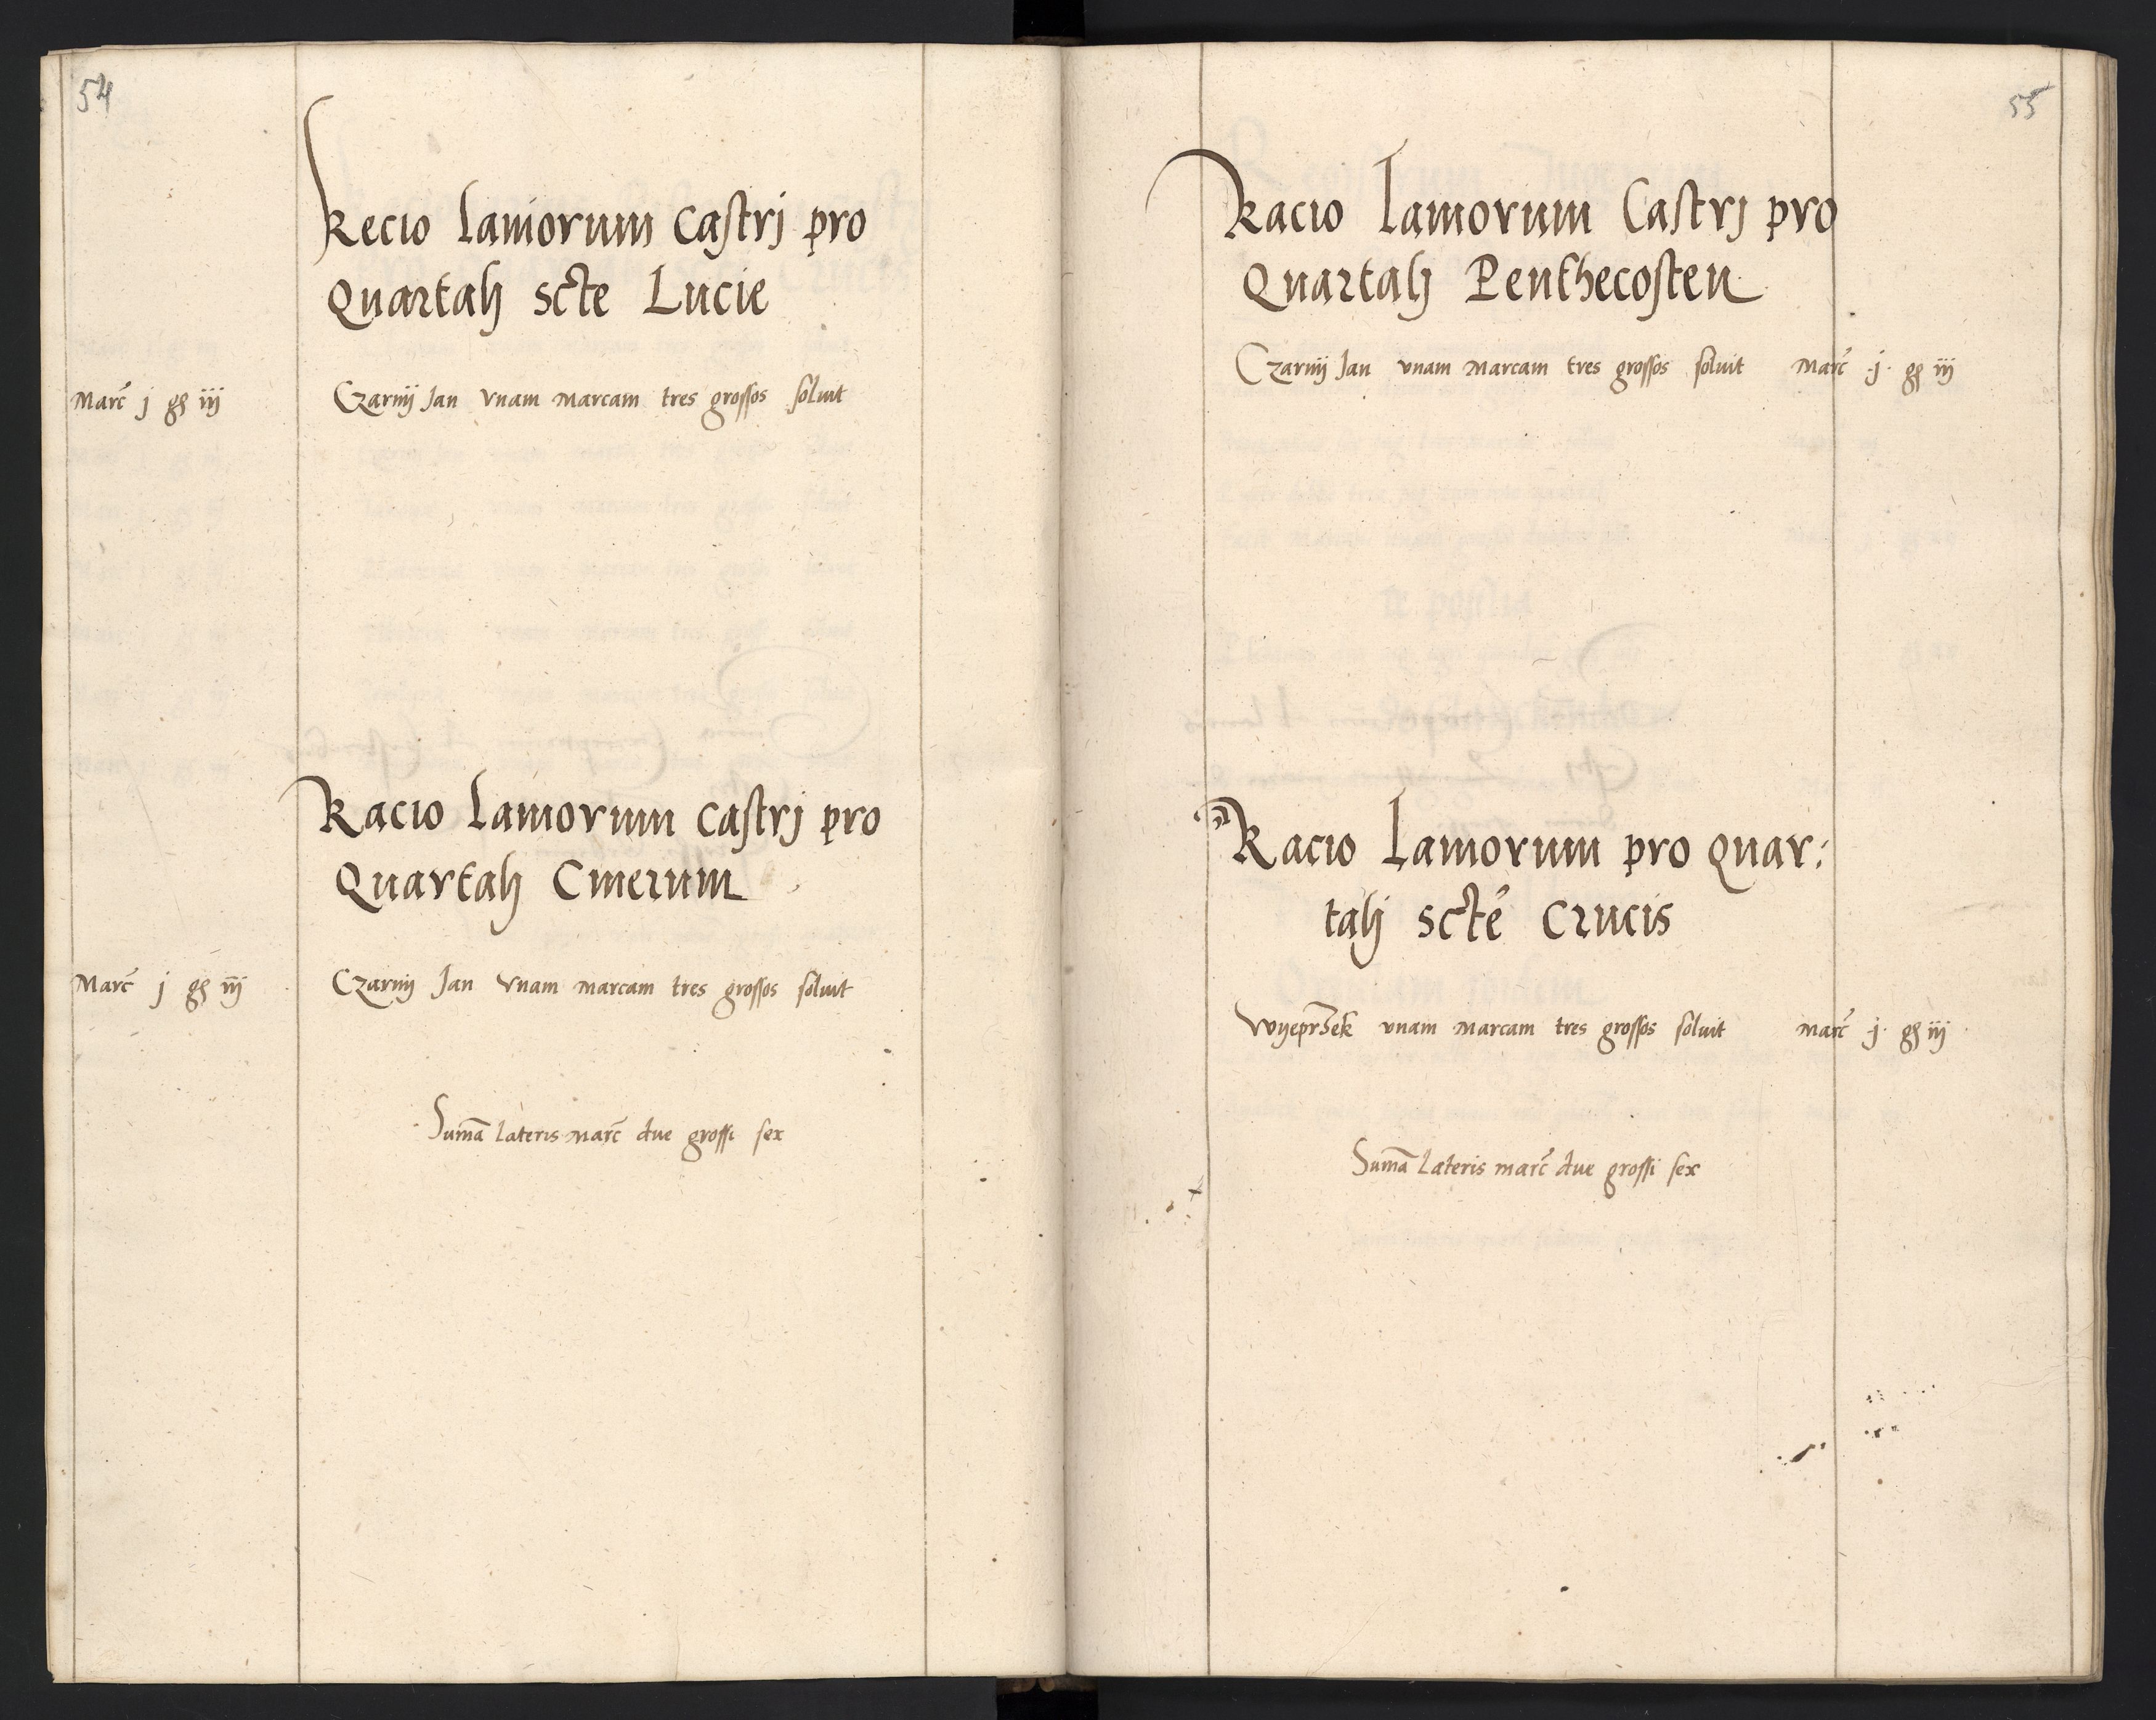 54
Recio laniorum Castrj pro
Quartalj scte Lucie
Marc j gs iij Czarnij Jan vnam Marcam tres grossos soluit
Racio laniorum Castrj pro
Quartalj Cinerum
Marc j gs iij Czarnij Jan vnam marcam tres grossos soluit
Suma Lateris Marc due grossi sex
55
Racio Laniorum Castrj pro
Quartalj Penthecosten
Czarnij Jan vnam Marcam tres grossos soluit Marc j gs iij
Racio Laniorum pro quar:
talj scte Crucis
Wyeprzek vnam Marcam tres grossos soluit Marc j gs iij
Suma Lateris marc due grossi sex